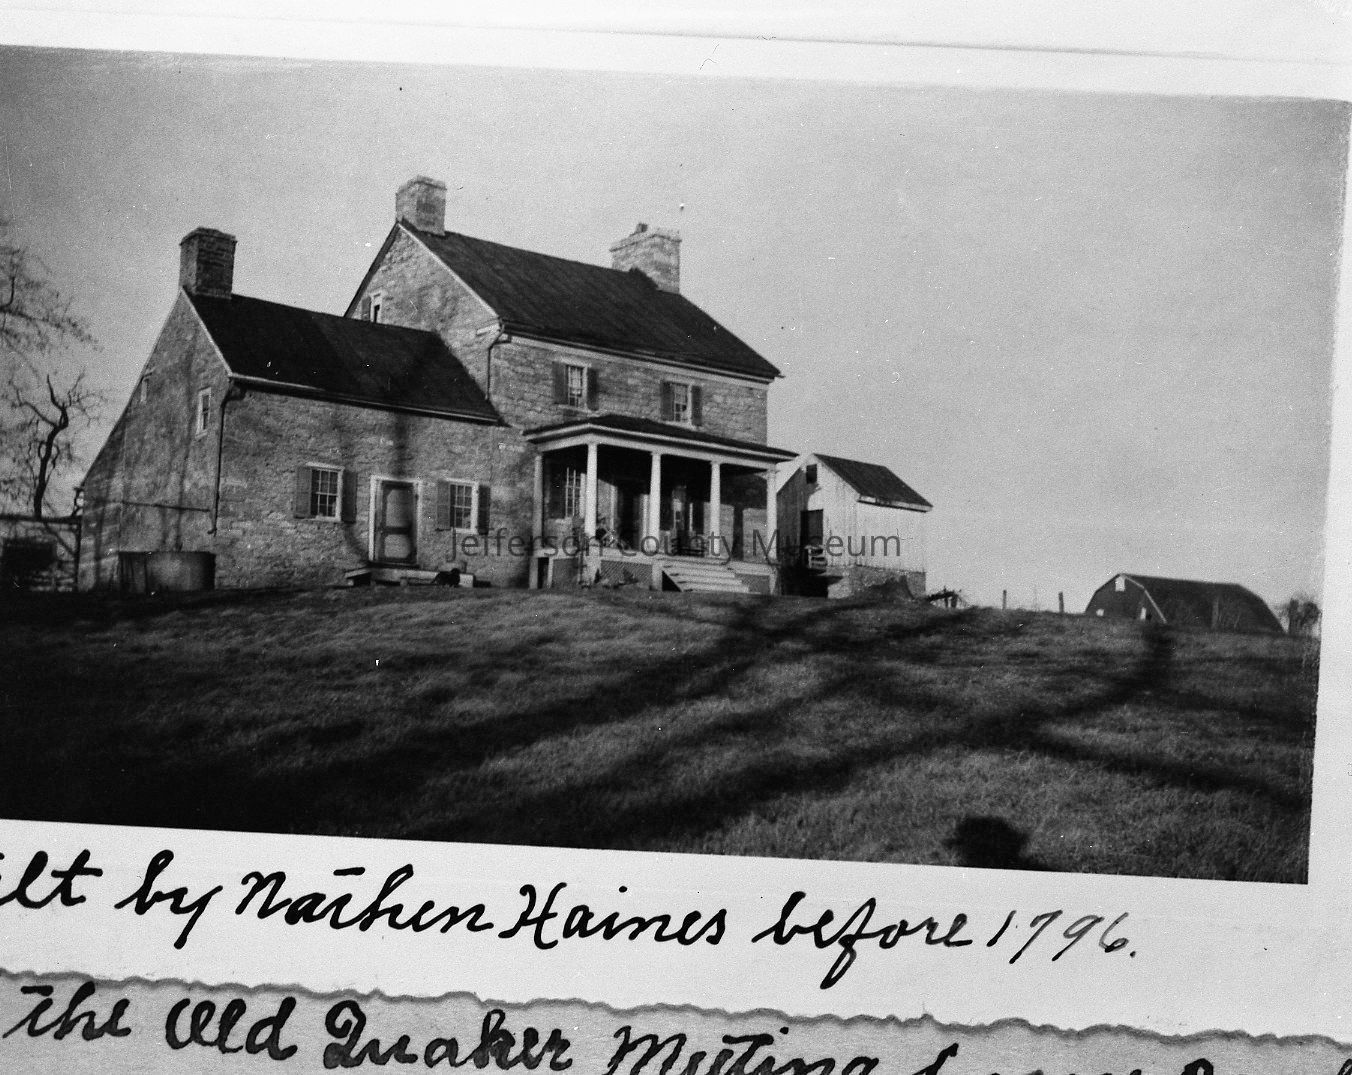 Jefferson County Museum
ilt by Nathen Haines before 1796.
the Old Quaker Meeting